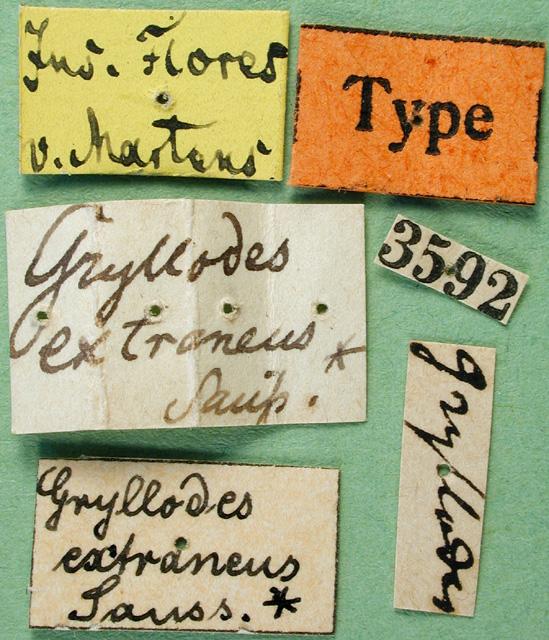 Ins. Flores
v. Martens
Type
Gryllodes
extraneus *
Sauss.
3592
Gryllodes
Gryllodes
extraneus
Sauss. *